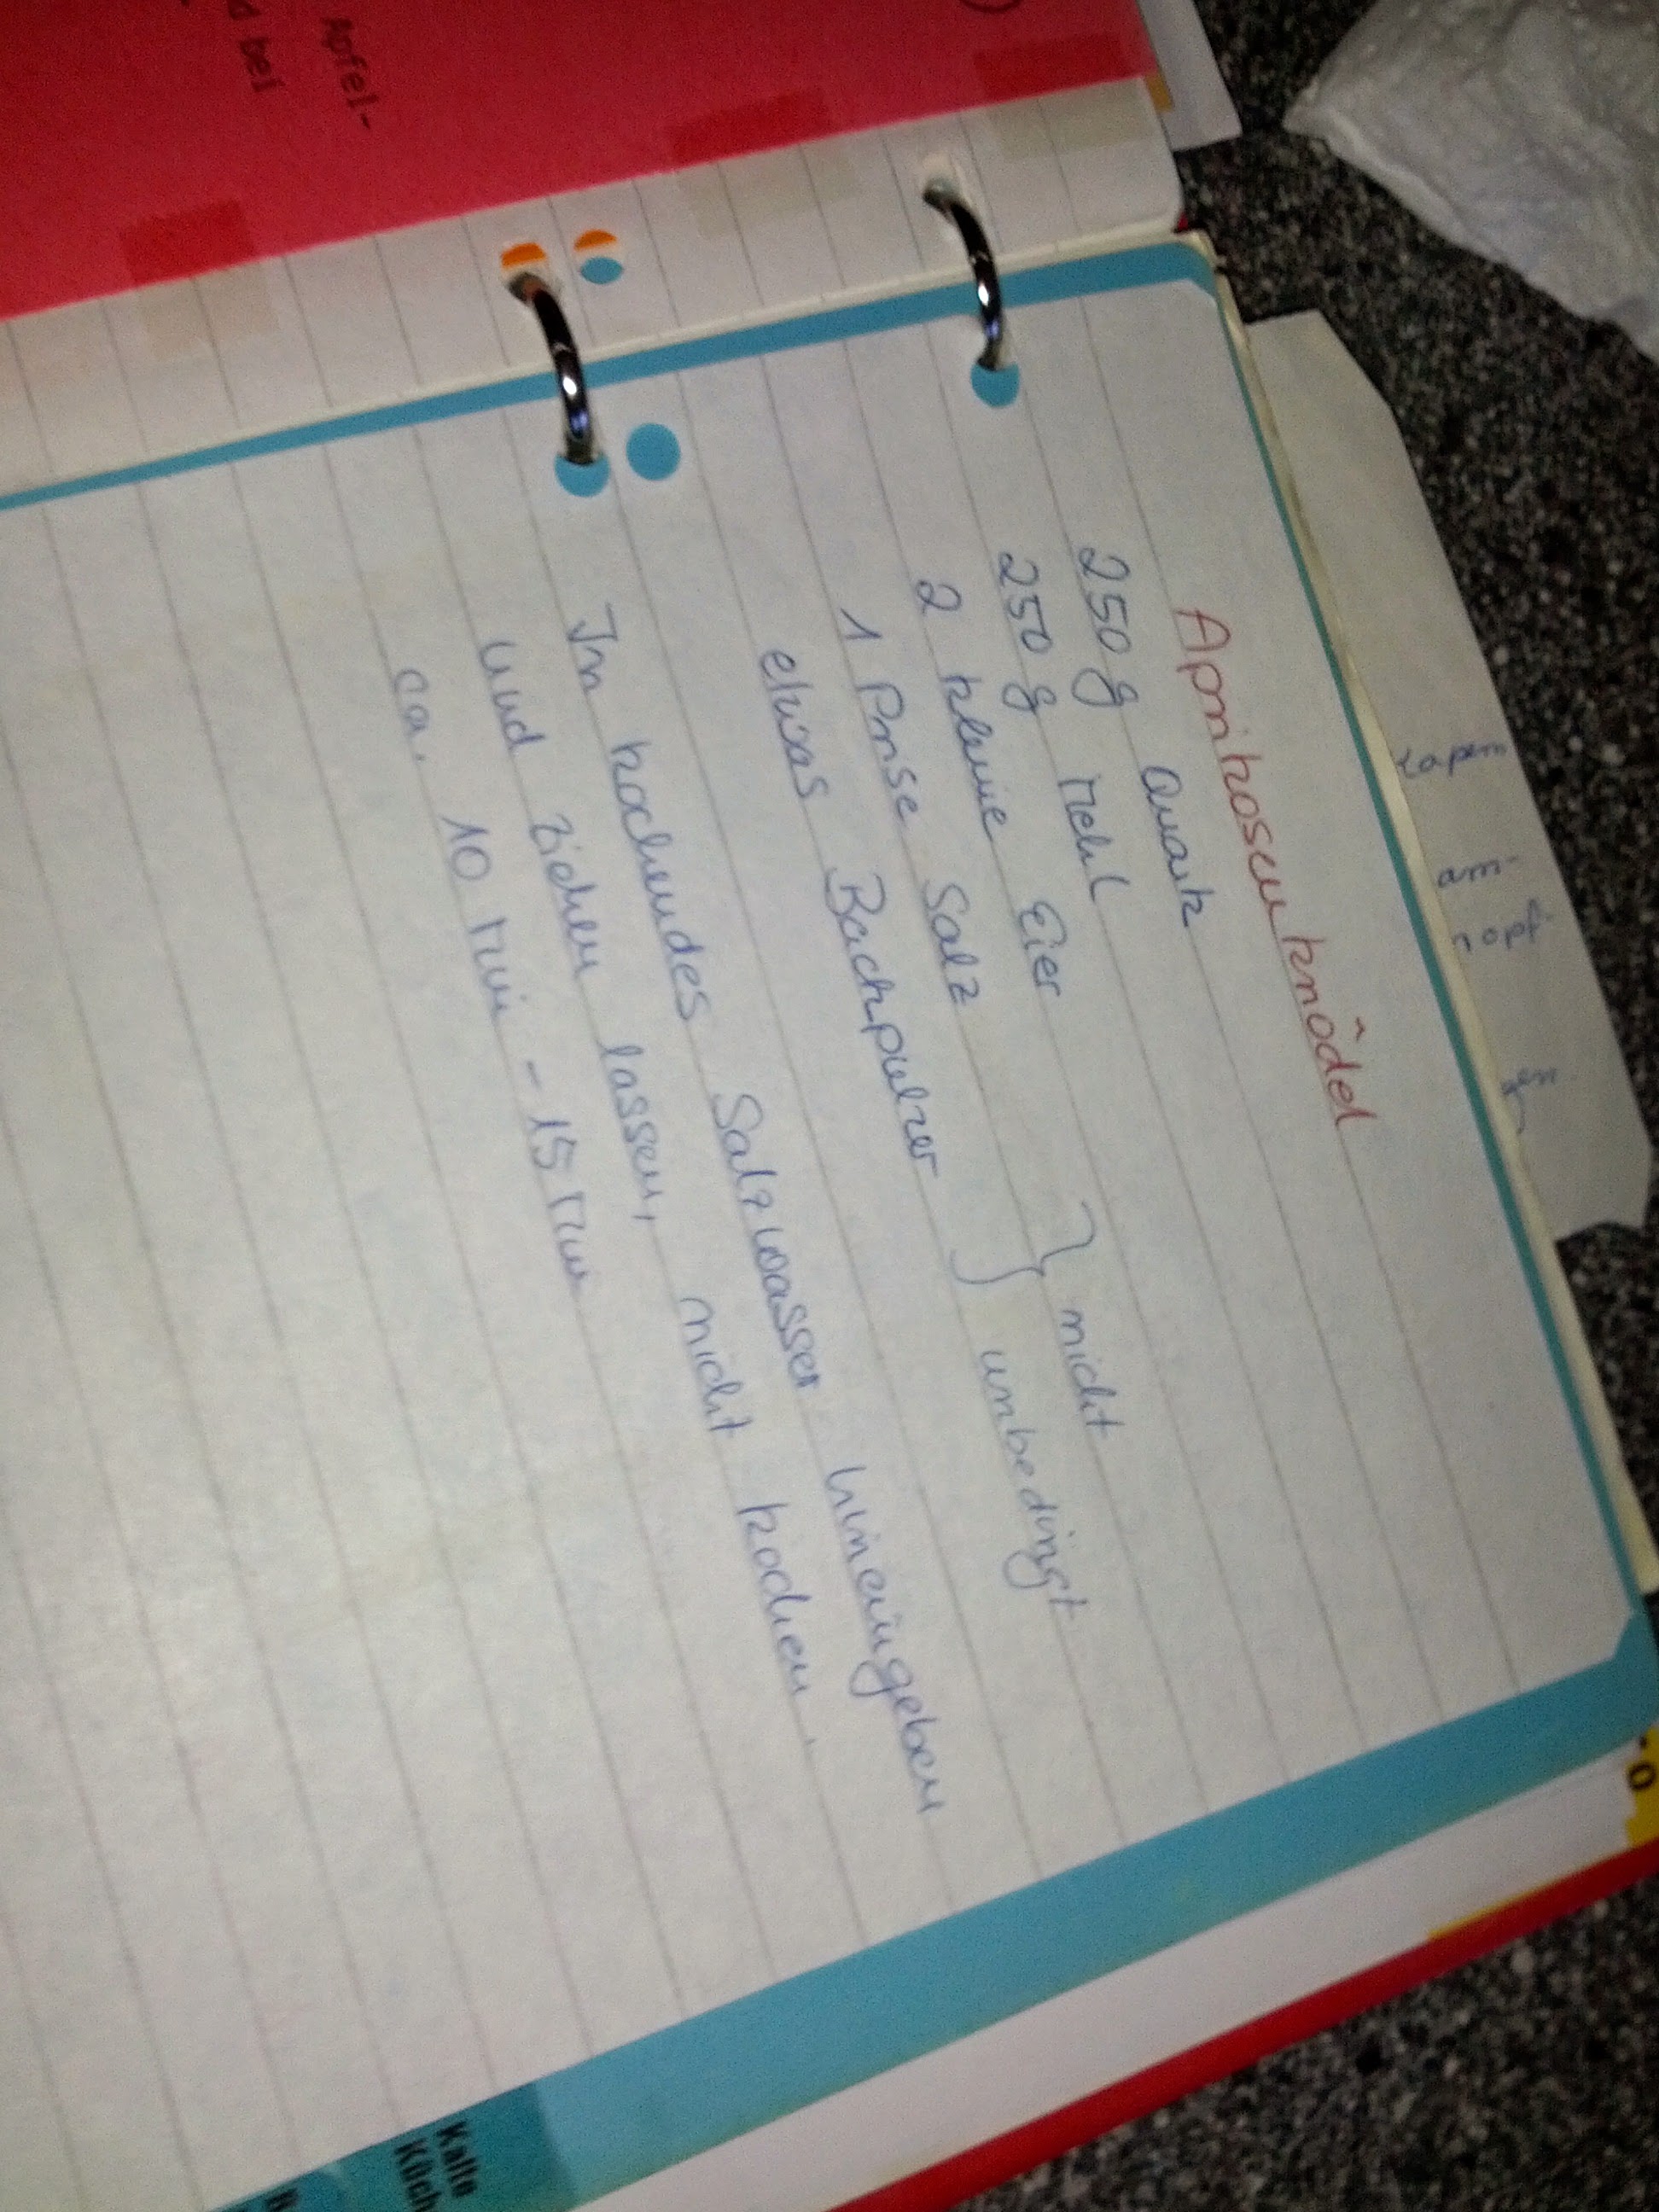 Aprikosenknödel
250 g Quark
250 g Mehl
2 kleine Eier
1 Prise Salz } nicht
etwas Backpulver } unbedingt
In kochendes Salzwasser hineingeben
und ziehen lassen, nicht kochen.
ca. 10 Min - 15 Min
Apfel-
d bei
am-
Kalte
Küch